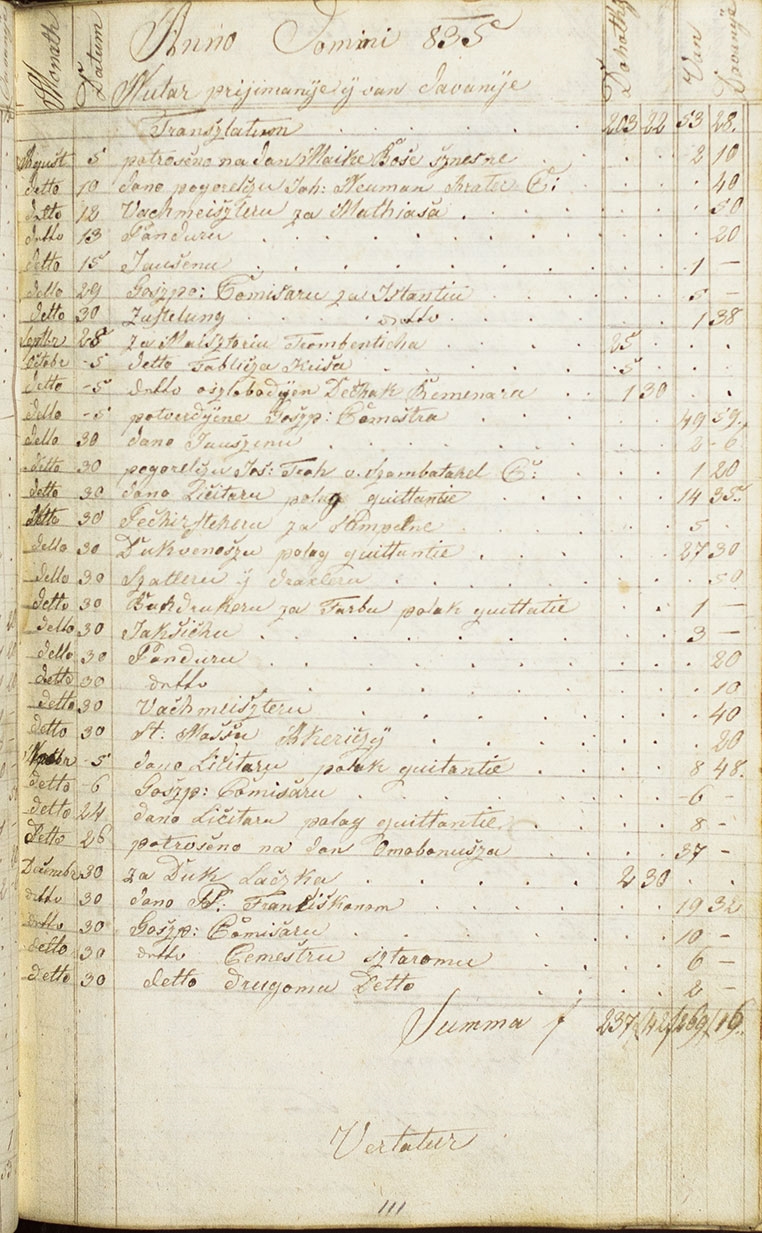 Anno Domini 835
Monath Datum Nutar prijimanije ÿ van davanÿe Dohodki Van Davanÿe
Transzlatum 203 22 53 28.
August 5 potrosено na dan Maike Bose sznesne 2 10
detto 10 dano pogorelczu Joh: Neuman Krater C: 40
detto 12 Vachmeiszteru za Mathiasa 50
detto 13 Panduru 20
detto 15 Jaušenu 1 –
detto 29 Goszpo: Comišaru za Istantiu 5 –
detto 30 Zustelung detto 1 38
Septbr 28 za Maisztoriu Trombenticha 25
Octobr -5 detto Tabličza Kuisa 5
detto -5 detto oszlobodÿen Dechak Remenara 1 30
detto -5 potverdÿene Goszp: Comestra 49 59.
detto 30 dano Jauszenu 2 6
detto 30 pogorelczu Jos: v. Szombatahel C: 1 20
detto 30 dano Ličitaru polag quittantie 14 35.
detto 30 za Stimpelne 5
detto 30 Dukvenoszu polag quittantie 27 30
detto 30 Szatleru ÿ draxleru 50
detto 30 Buhdrukeru za Farbu polak quittatie 1 –
detto 30 Jaksičku 3 –
detto 30 Panduru 20
detto 30 detto 10
detto 30 Vachmeiszteru 40
detto 30 St: Massu 20
-5 dano Ličitaru polak quitantie 8 48.
detto -6 Goszp: Comišaru 6 –
detto 24 dano Ličitaru polag quittantie 8 –
Detto 26 potrošeno na dan Omobonusza 37 –
December 30 za Duk Lačzka 2 30
detto 30 dano P: Franciškanom 19 32
detto 30 Goszp: Comišaru 10 –
detto 30 detto Cemeštru sztaromu 6 –
detto 30 detto drugomu Detto 2 –
Summa f 237 42 269 16.
Vertatur
111